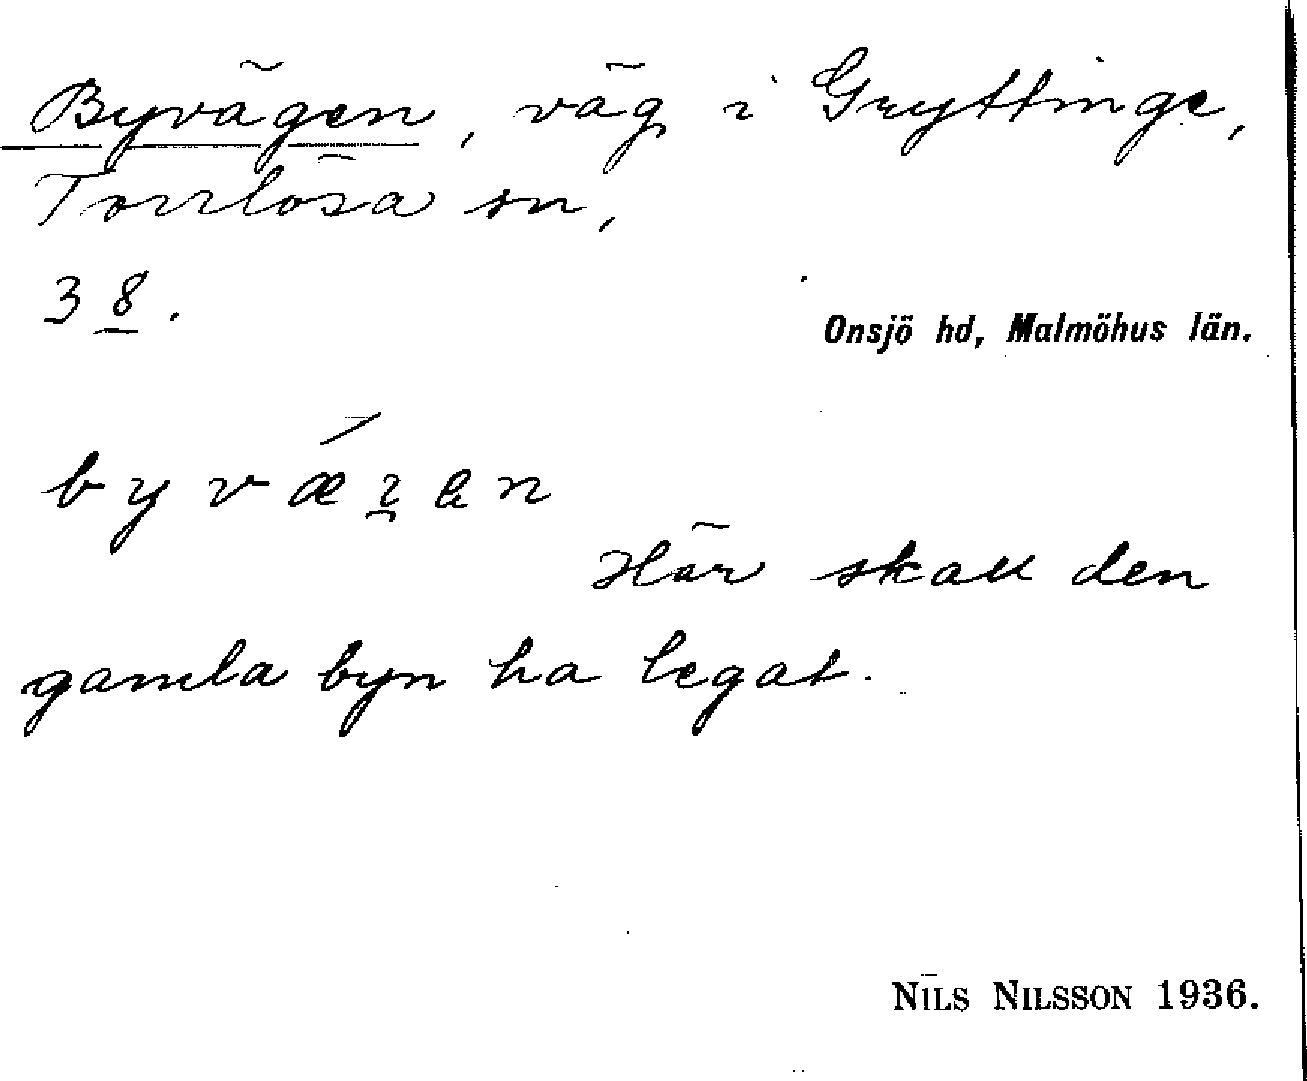 Byvägen, väg i Gryttinge,
Torrlösa sn,
38.
Onsjö hd, Malmöhus län.
byvǽɀen
Här skall den
gamla byn ha legat.
NILS NILSSON 1936.